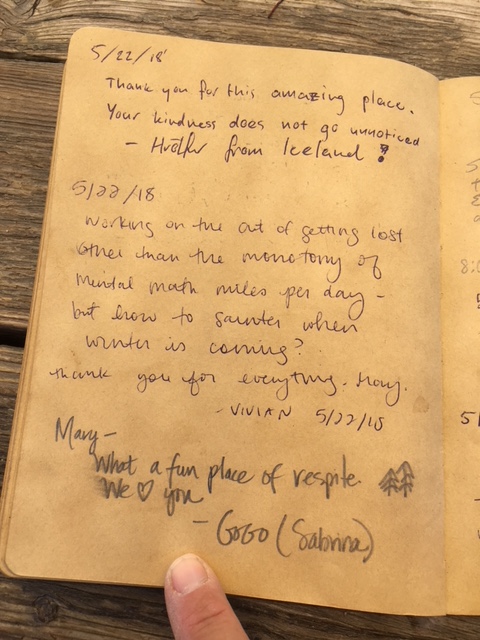 5/22/18'
Thank you for this amazing place.
Your kindness does not go unnoticed
- from Iceland!
5/22/18
Working on the art of getting lost
other than the monotony of
mental math miles per day -
but how to saunter when
winter is coming?
Thank you for everything.
- VIVIAN 5/22/18
Mary-
What a fun place of respite.
We ♡ you
- GoGo (Sabrina)
5
5
8:
5